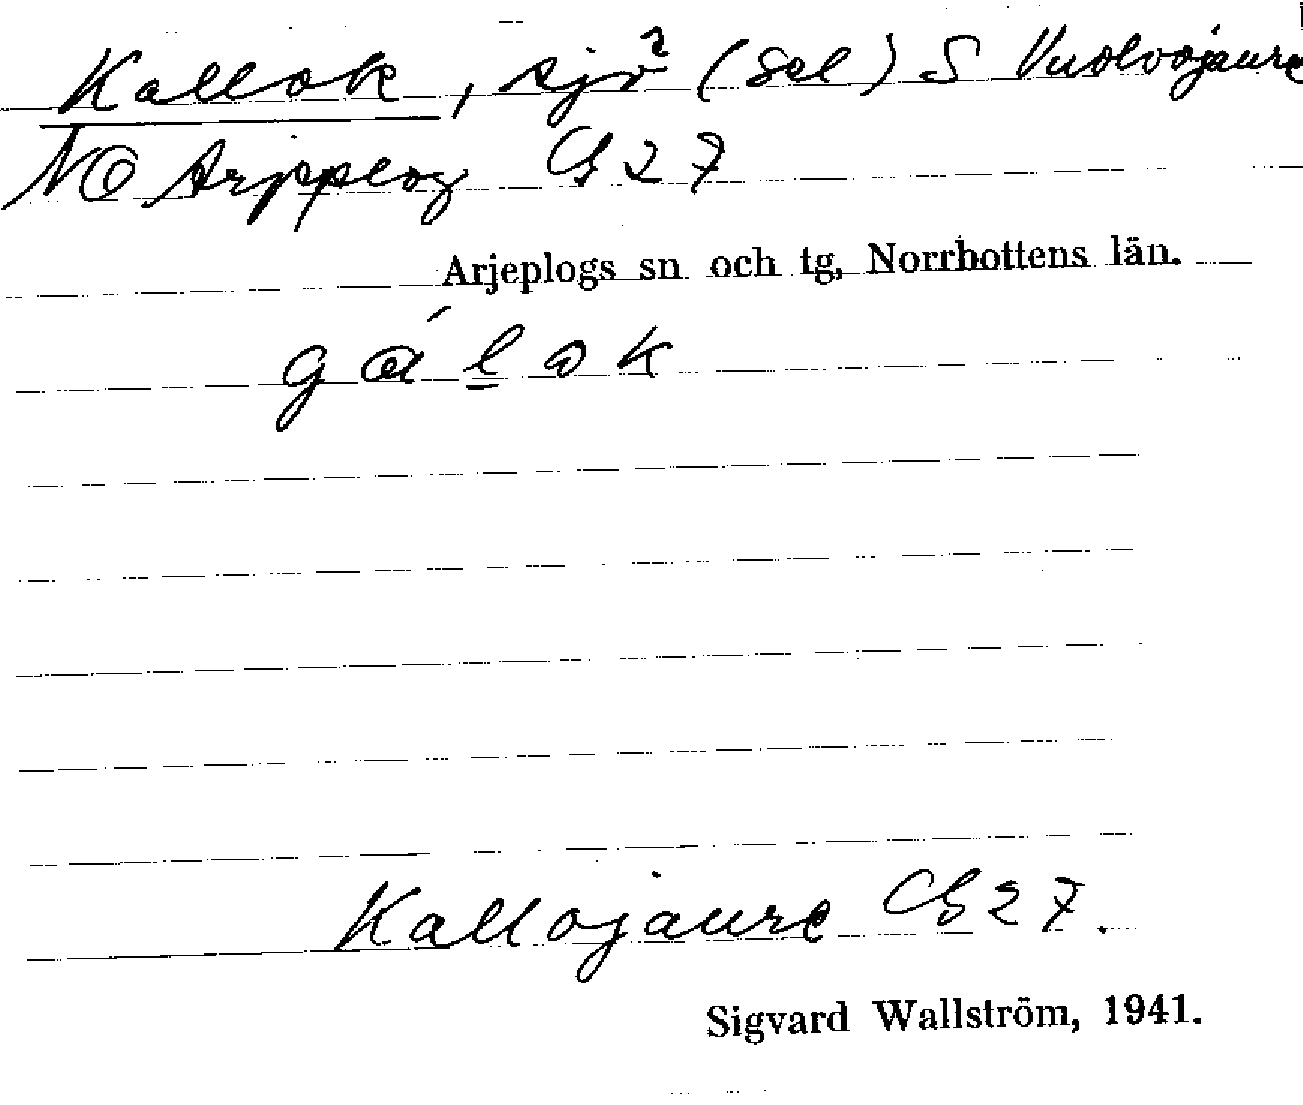 Kallok, sjö (Sel) S Vuolvojaure
NO Arjepplog GS 27
Arjeplogs sn och tg, Norrbottens län.
gálok
Kallojaure GS 27.
Sigvard Wallström, 1941.